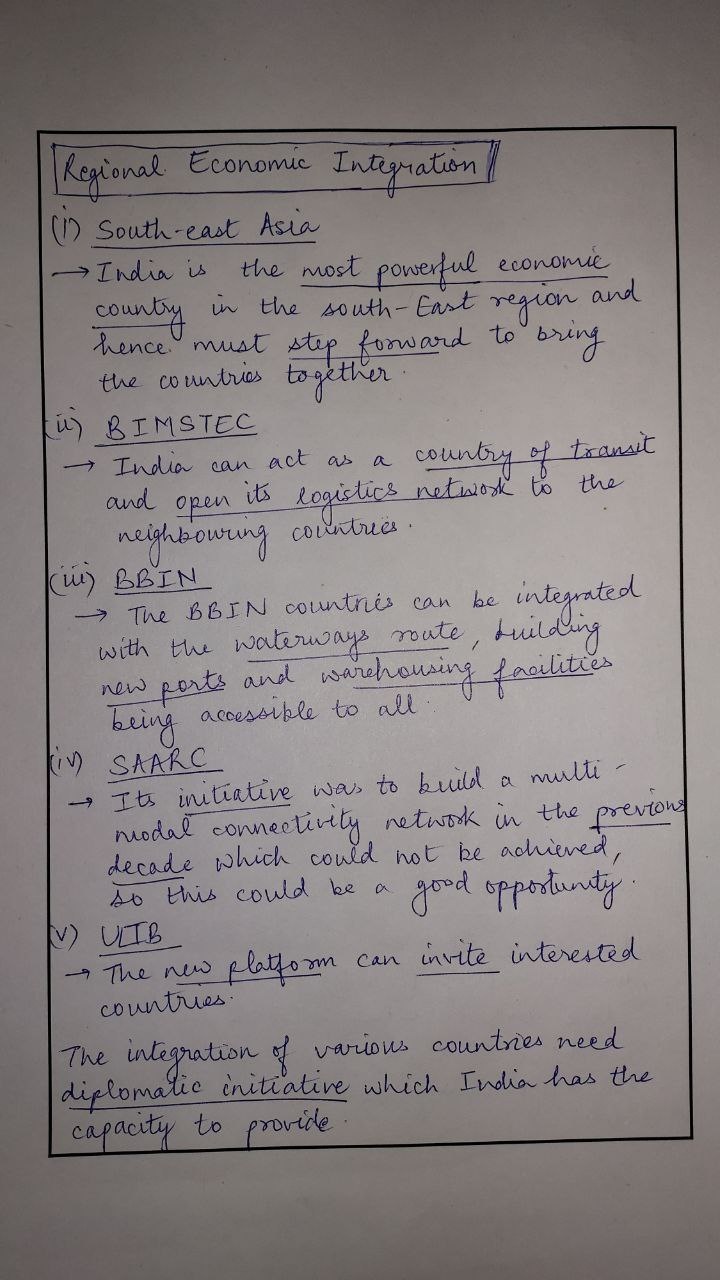 Regional Economic Integration
(i) South-east Asia
→ India is the most powerful economic
country in the south-East region and
hence must step forward to bring
the countries together.
(ii) BIMSTEC
→ India can act as a country of transit
and open its logistics network to the
neighbouring countries.
(iii) BBIN
→ The BBIN countries can be integrated
with the waterways route, building
new ports and warehousing facilities
being accessible to all.
(iv) SAARC
→ Its initiative was to build a multi-
modal connectivity network in the previous
decade which could not be achieved,
so this could be a good opportunity.
v) ULIB
→ The new platform can invite interested
countries.
The integration of various countries need
diplomatic initiative which India has the
capacity to provide.